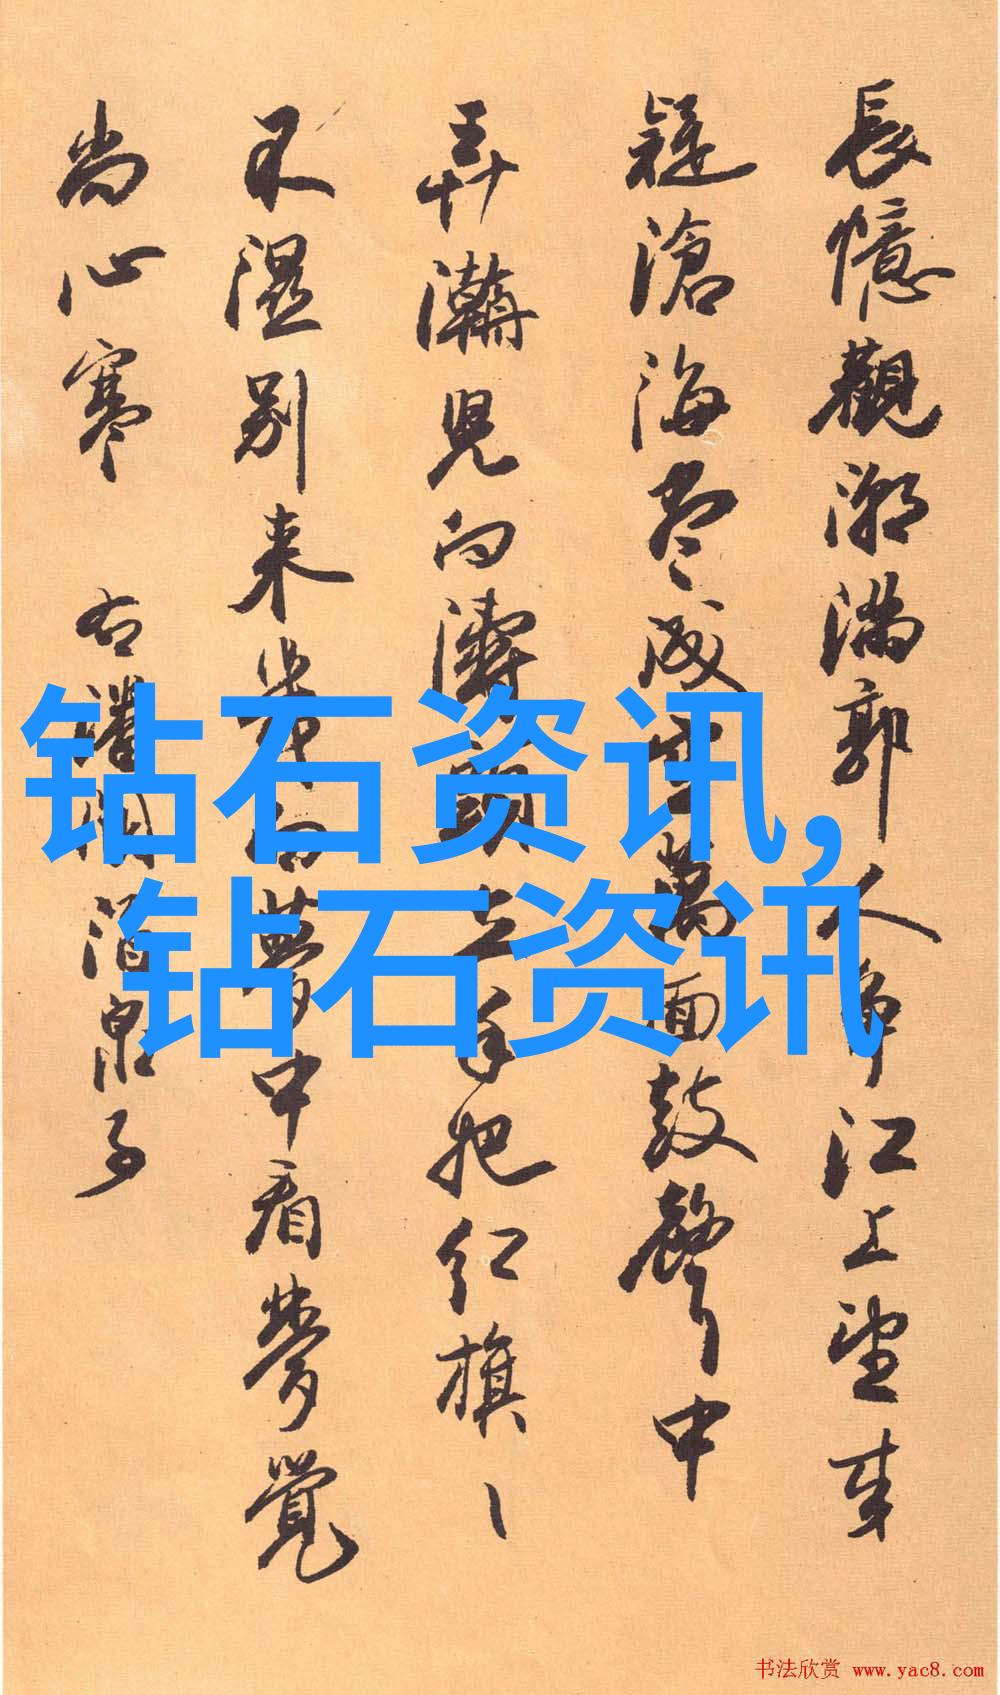 長憶觀潮滿郭人爭江上望來
疑滄海盡成空萬面鼓聲中
弄濤兒向濤頭立手把紅旗旗
不濕別來幾向夢中看夢覺
尚心寒 右潘閬酒泉子
钻石资讯,
钻石资讯
书法欣赏 www.yac8.com